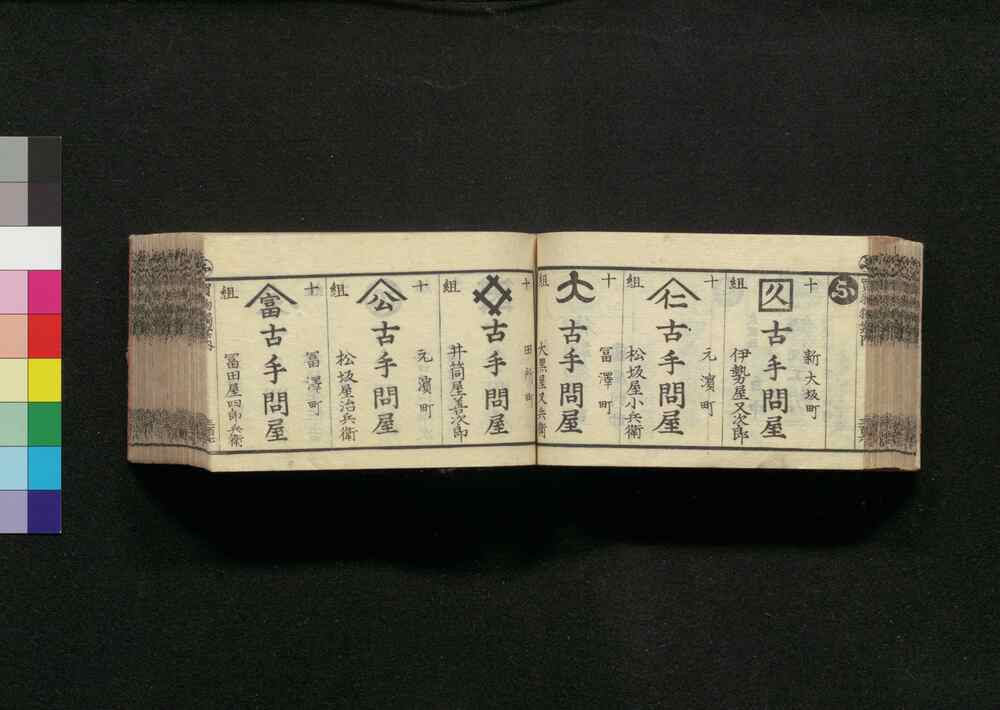 ふ
十
新大坂町
久
古手問屋
組
伊勢屋又次郎
十
元濱町
仁
古手問屋
組
松坂屋小兵衛
十
冨澤町
大
古手問屋
組
大黒屋又兵衛
十
田所町
古手問屋
組
井筒屋善次郎
十
元濱町
公
古手問屋
組
松坂屋治兵衛
十
冨澤町
富
古手問屋
組
冨田屋四郎兵衛